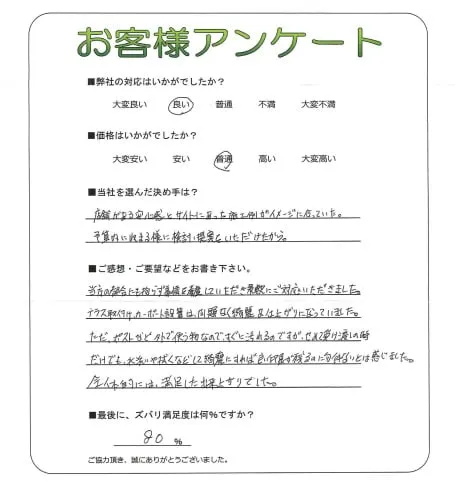 お客様アンケート
■弊社の対応はいかがでしたか？
大変良い 良い 普通 不満 大変不満
■価格はいかがでしたか？
大変安い 安い 普通 高い 大変高い
■当社を選んだ決め手は？
店舗がある安心感とサイトにあった施工例がイメージに合っていた。
予算内に収まる様に検討、提案をいただけたから。
■ご感想・ご要望などをお書き下さい。
当方の都合にも拘らず事情を いただき柔軟にご対応いただきました。
テラス取付け、カーポート設置は、問題なく綺麗な仕上がりになっていました。
ただ、ポストなど外で使う物なので、すぐに汚れるのですが、せめて受け渡しの時
だけでも、水洗いや拭くなどして綺麗にすれば が残るのに勿体ないとは感じました。
全体的には、満足した出来上がりでした。
■最後に、ズバリ満足度は何％ですか？
80 ％
ご協力頂き、誠にありがとうございました。